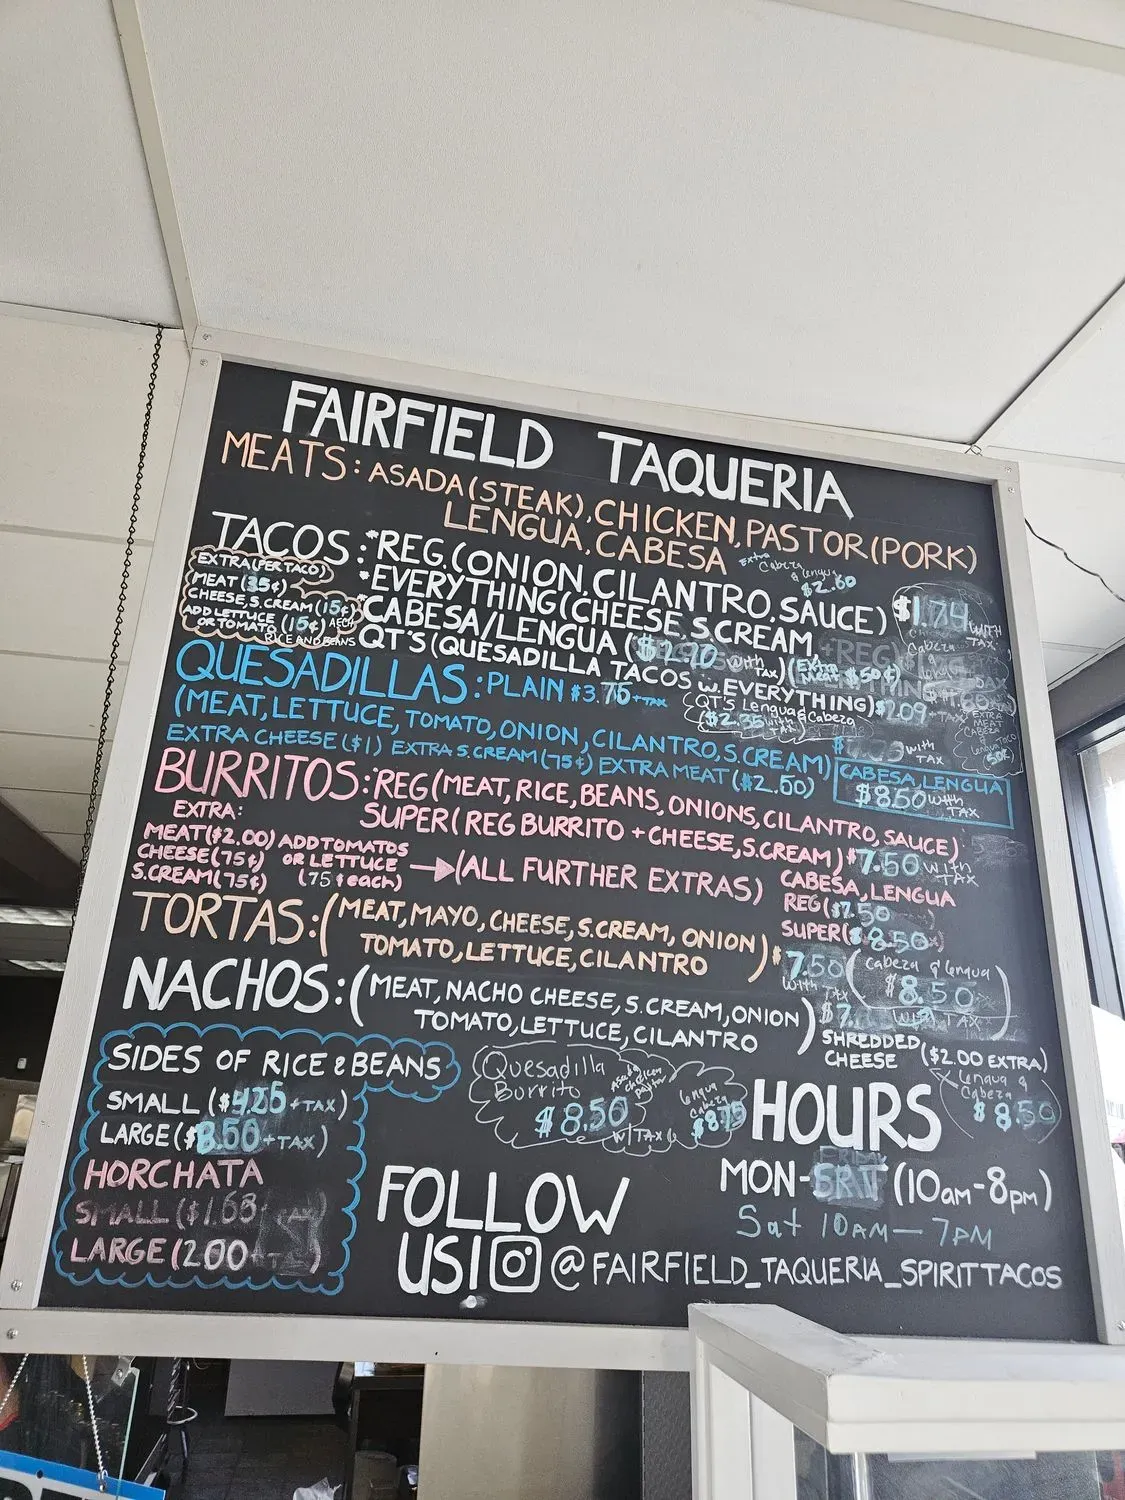 FAIRFIELD TAQUERIA
MEATS: ASADA (STEAK), CHICKEN, PASTOR (PORK)
LENGUA, CABESA
Extra Cabeza & Lengua $2.60
TACOS: *REG. (ONION, CILANTRO, SAUCE) $1.74 WITH TAX
*EVERYTHING (CHEESE, S.CREAM,
*CABESA/LENGUA ($2.90 WITH TAX) (Extra Meat $.50¢)
QT'S (QUESADILLA TACOS w. EVERYTHING) $2.09 + TAX
(QT'S Lengua & Cabeza
($2.35 with TAX)
EXTRA (PER TACO)
MEAT (35¢)
CHEESE, S.CREAM (15¢)
ADD LETTUCE (15¢) EACH
OR TOMATO
RICE AND BEANS
EXTRA MEAT CABEZA
QUESADILLAS: PLAIN $3.75 + TAX
(MEAT, LETTUCE, TOMATO, ONION, CILANTRO, S.CREAM) WITH TAX
EXTRA CHEESE ($1) EXTRA S.CREAM (75¢) EXTRA MEAT ($2.50)
CABESA, LENGUA
$8.50 WITH TAX
BURRITOS: REG (MEAT, RICE, BEANS, ONIONS, CILANTRO, SAUCE)
SUPER (REG BURRITO + CHEESE, S.CREAM) $7.50 WITH TAX
EXTRA:
MEAT ($2.00) ADD TOMATOS
CHEESE (75¢) OR LETTUCE
S.CREAM (75¢) (75¢ each)
(ALL FURTHER EXTRAS)
CABESA, LENGUA
REG ($7.50
SUPER ($8.50)
TORTAS: (MEAT, MAYO, CHEESE, S.CREAM, ONION
TOMATO, LETTUCE, CILANTRO) $7.50 WITH TAX
(Cabeza & Lengua
$8.50
WITH TAX)
NACHOS: (MEAT, NACHO CHEESE, S.CREAM, ONION
TOMATO, LETTUCE, CILANTRO) $7.
SHREDDED CHEESE ($2.00 EXTRA)
Lengua & Cabeza
$8.50
SIDES OF RICE & BEANS
SMALL ($4.25 + TAX)
LARGE ($8.50 + TAX)
HORCHATA
SMALL ($1.68
LARGE (2.00
Quesadilla Burrito
Asada chicken pastor
$8.50 W/TAX
Lengua Cabeza $8.75
HOURS
FRIDAY
MON-SAT (10am-8pm)
Sat 10AM — 7PM
FOLLOW
US! @FAIRFIELD_TAQUERIA_SPIRITTACOS